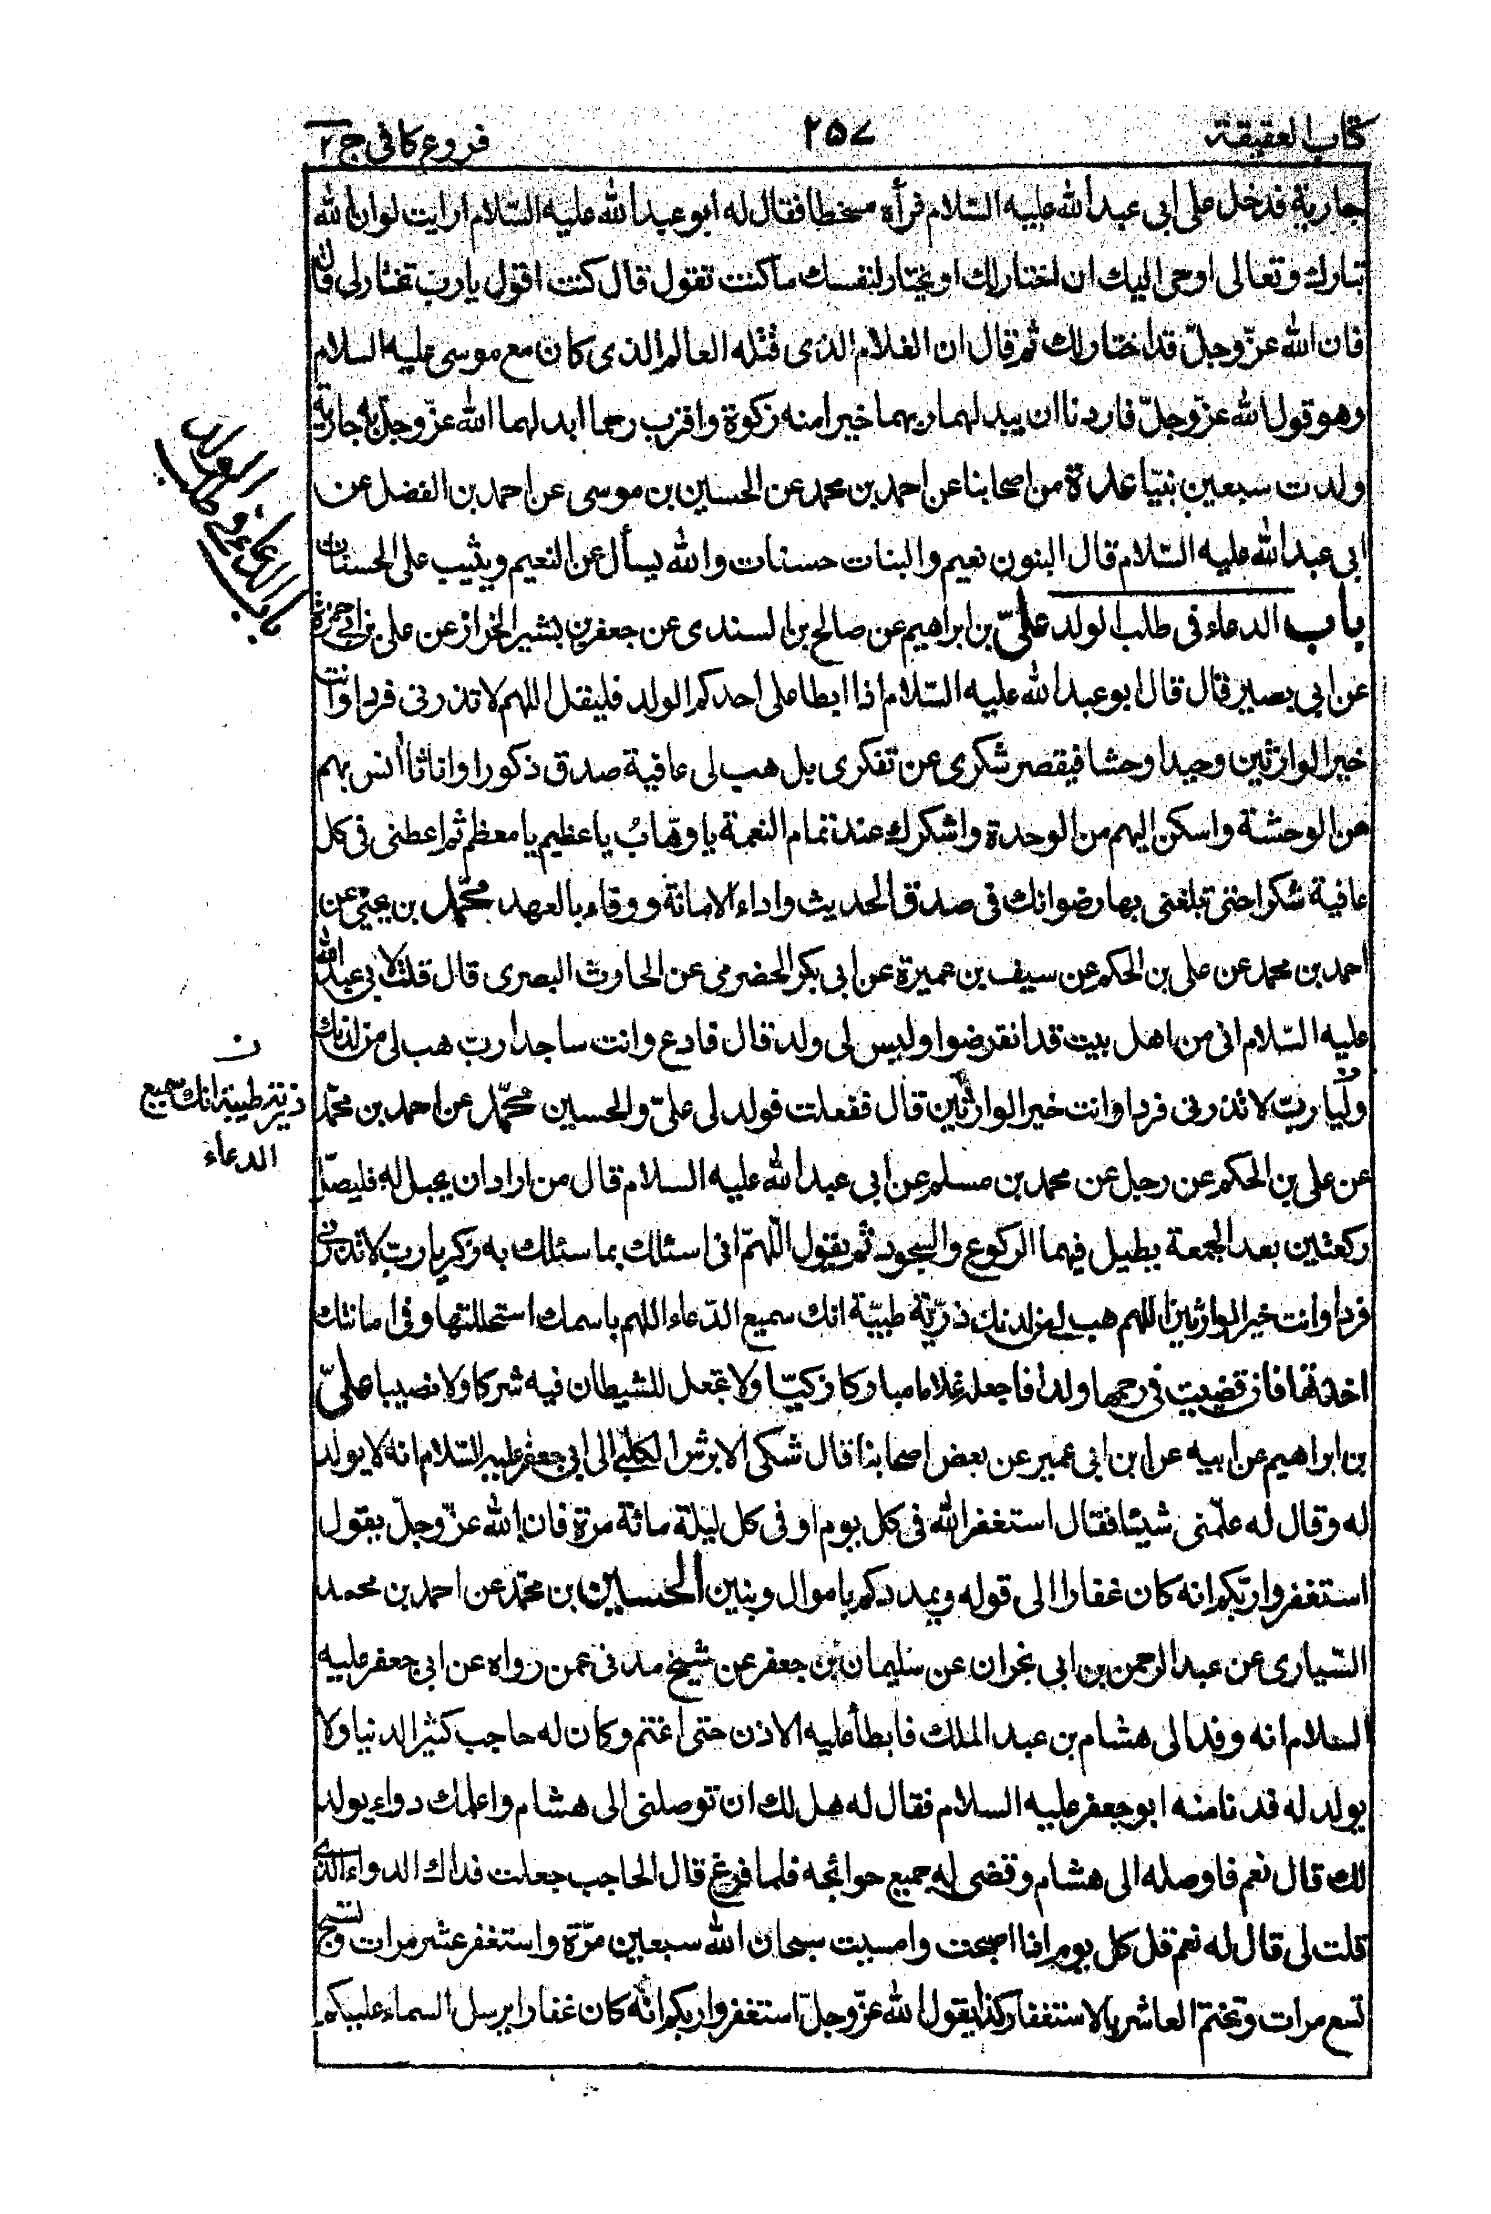 كتاب العقيقة
٢٥٧
فروع كافى ج ٢
جارية فدخل على ابى عبد الله عليه السّلام فرأه مسخطا فقال له ابو عبد الله عليه السّلام ارايت لو ان الله
تبارك وتعالى اوحى اليك ان اختار لك او تختار لنفسك ما كنت تقول قال كنت اقول يا رب تختار لى قال
فان الله عزّ وجلّ قد اختار لك ثم قال ان الغلام الذى قتله العالم الذى كان مع موسى عليه السلام
وهو قول الله عزّ وجلّ فاردنا ان يبدلهما ربهما خيرا منه زكوة واقرب رحما ابدلهما الله عزّ وجلّ به جارية
ولدت سبعين نبيّا عدة من اصحابنا عن احمد بن محمد عن الحسين بن موسى عن احمد بن الفضل عن
ابى عبد الله عليه السّلام قال البنون نعيم والبنات حسنات والله يسأل عن النعيم ويثيب على الحسنات
باب الدعاء فى طلب الولد علىّ بن ابراهيم عن صالح بن السندى عن جعفر بن بشير الخزاز عن على بن ابى حمزة
عن ابى بصير قال قال ابو عبد الله عليه السّلام اذا ابطا على احدكم الولد فليقل اللهم لا تذرنى فردا وانت
خير الوارثين وحيدا وحشا فيقصر شكرى عن تفكرى بل هب لى عافية صدق ذكورا واناثا أنس بهم
من الوحشة واسكن اليهم من الوحدة واشكرك عند تمام النعمة يا وهّاب يا عظيم يا معظم ثم اعطنى فى كل
عافية شكرا حتى تبلغنى بها رضوانك فى صدق الحديث واداء الامانة ووفاء بالعهد محمّد بن يحيى عن
احمد بن محمد عن على بن الحكم عن سيف بن عميرة عن ابى بكر الحضرمى عن الحارث البصرى قال قلت لابى عبد الله
عليه السّلام انى من اهل بيت قد انقرضوا وليس لى ولد قال فادع وانت ساجد رب هب لى من لدنك
وليا رب لا تذرنى فردا وانت خير الوارثين قال ففعلت فولد لى علىّ والحسين محمّد عن احمد بن محمّد
عن على بن الحكم عن رجل عن محمد بن مسلم عن ابى عبد الله عليه السلام قال من اراد ان يحبل له فليصلّ
ركعتين بعد الجمعة يطيل فيهما الركوع والسجود ثم يقول اللّهمّ انى اسئلك بما سئلك به زكريا رب لا تذرنى
فردا وانت خير الوارثين اللهم هب لى من لدنك ذرّيّة طيّبة انك سميع الدّعاء اللهم باسمك استحللتها وفى امانتك
اخذتها فان قضيت فى رحمها ولدا فاجعله غلاما مباركا زكيّا ولا تجعل للشيطان فيه شركا ولا نصيبا علىّ
بن ابراهيم عن ابيه عن ابن ابى عمير عن بعض اصحابنا قال شكى الابرش الكلبى الى ابى جعفر عليه السّلام انه لا يولد
له وقال له علّمنى شيئا فقال استغفر الله فى كل يوم او فى كل ليلة مائة مرة فان الله عزّ وجلّ يقول
استغفروا ربّكم انه كان غفارا الى قوله ويمددكم باموال وبنين الحسين بن محمّد عن احمد بن محمد
السّيارى عن عبد الرحمن بن ابى نجران عن سليمان بن جعفر عن شيخ مدنى عمن رواه عن ابى جعفر عليه
السلام انه وفد الى هشام بن عبد الملك فابطأ عليه الاذن حتى اغتم وكان له حاجب كثير الدنيا ولا
يولد له فدنا منه ابو جعفر عليه السلام فقال له هل لك ان توصلنى الى هشام واعلمك دواء يولد
لك قال نعم فاوصله الى هشام وقضى له جميع حوائجه فلما فرغ قال الحاجب جعلت فداك الدواء الذى
قلت لى قال له نعم قل كل يوم اذا اصبحت وامسيت سبحان الله سبعين مرّة واستغفر عشر مرات وتسبح
تسع مرات وتختم العاشر بالاستغفار كذا يقول الله عزّ وجلّ استغفروا ربكم انه كان غفارا يرسل السماء عليكم
باب الدعاء فى طلب الولد
ن
ذرية طيبة انك سميع
الدعاء